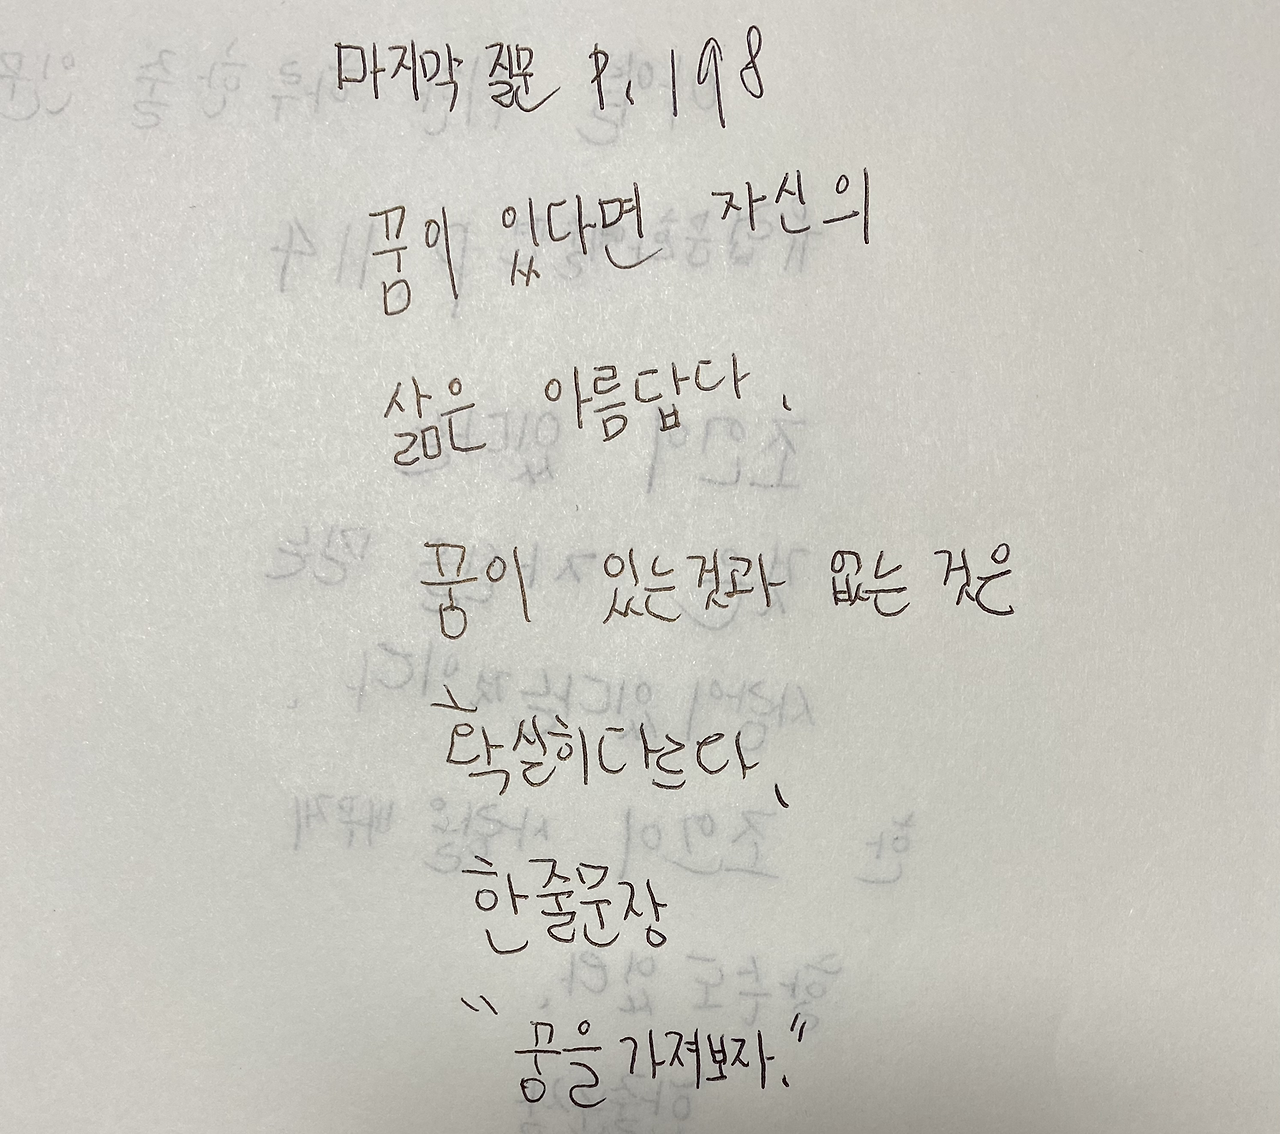 마지막 질문 P.198
꿈이 있다면 자신의
삶은 아름답다.
꿈이 있는것과 없는 것은
확실히다르다.
한줄문장
"꿈을 가져보자."